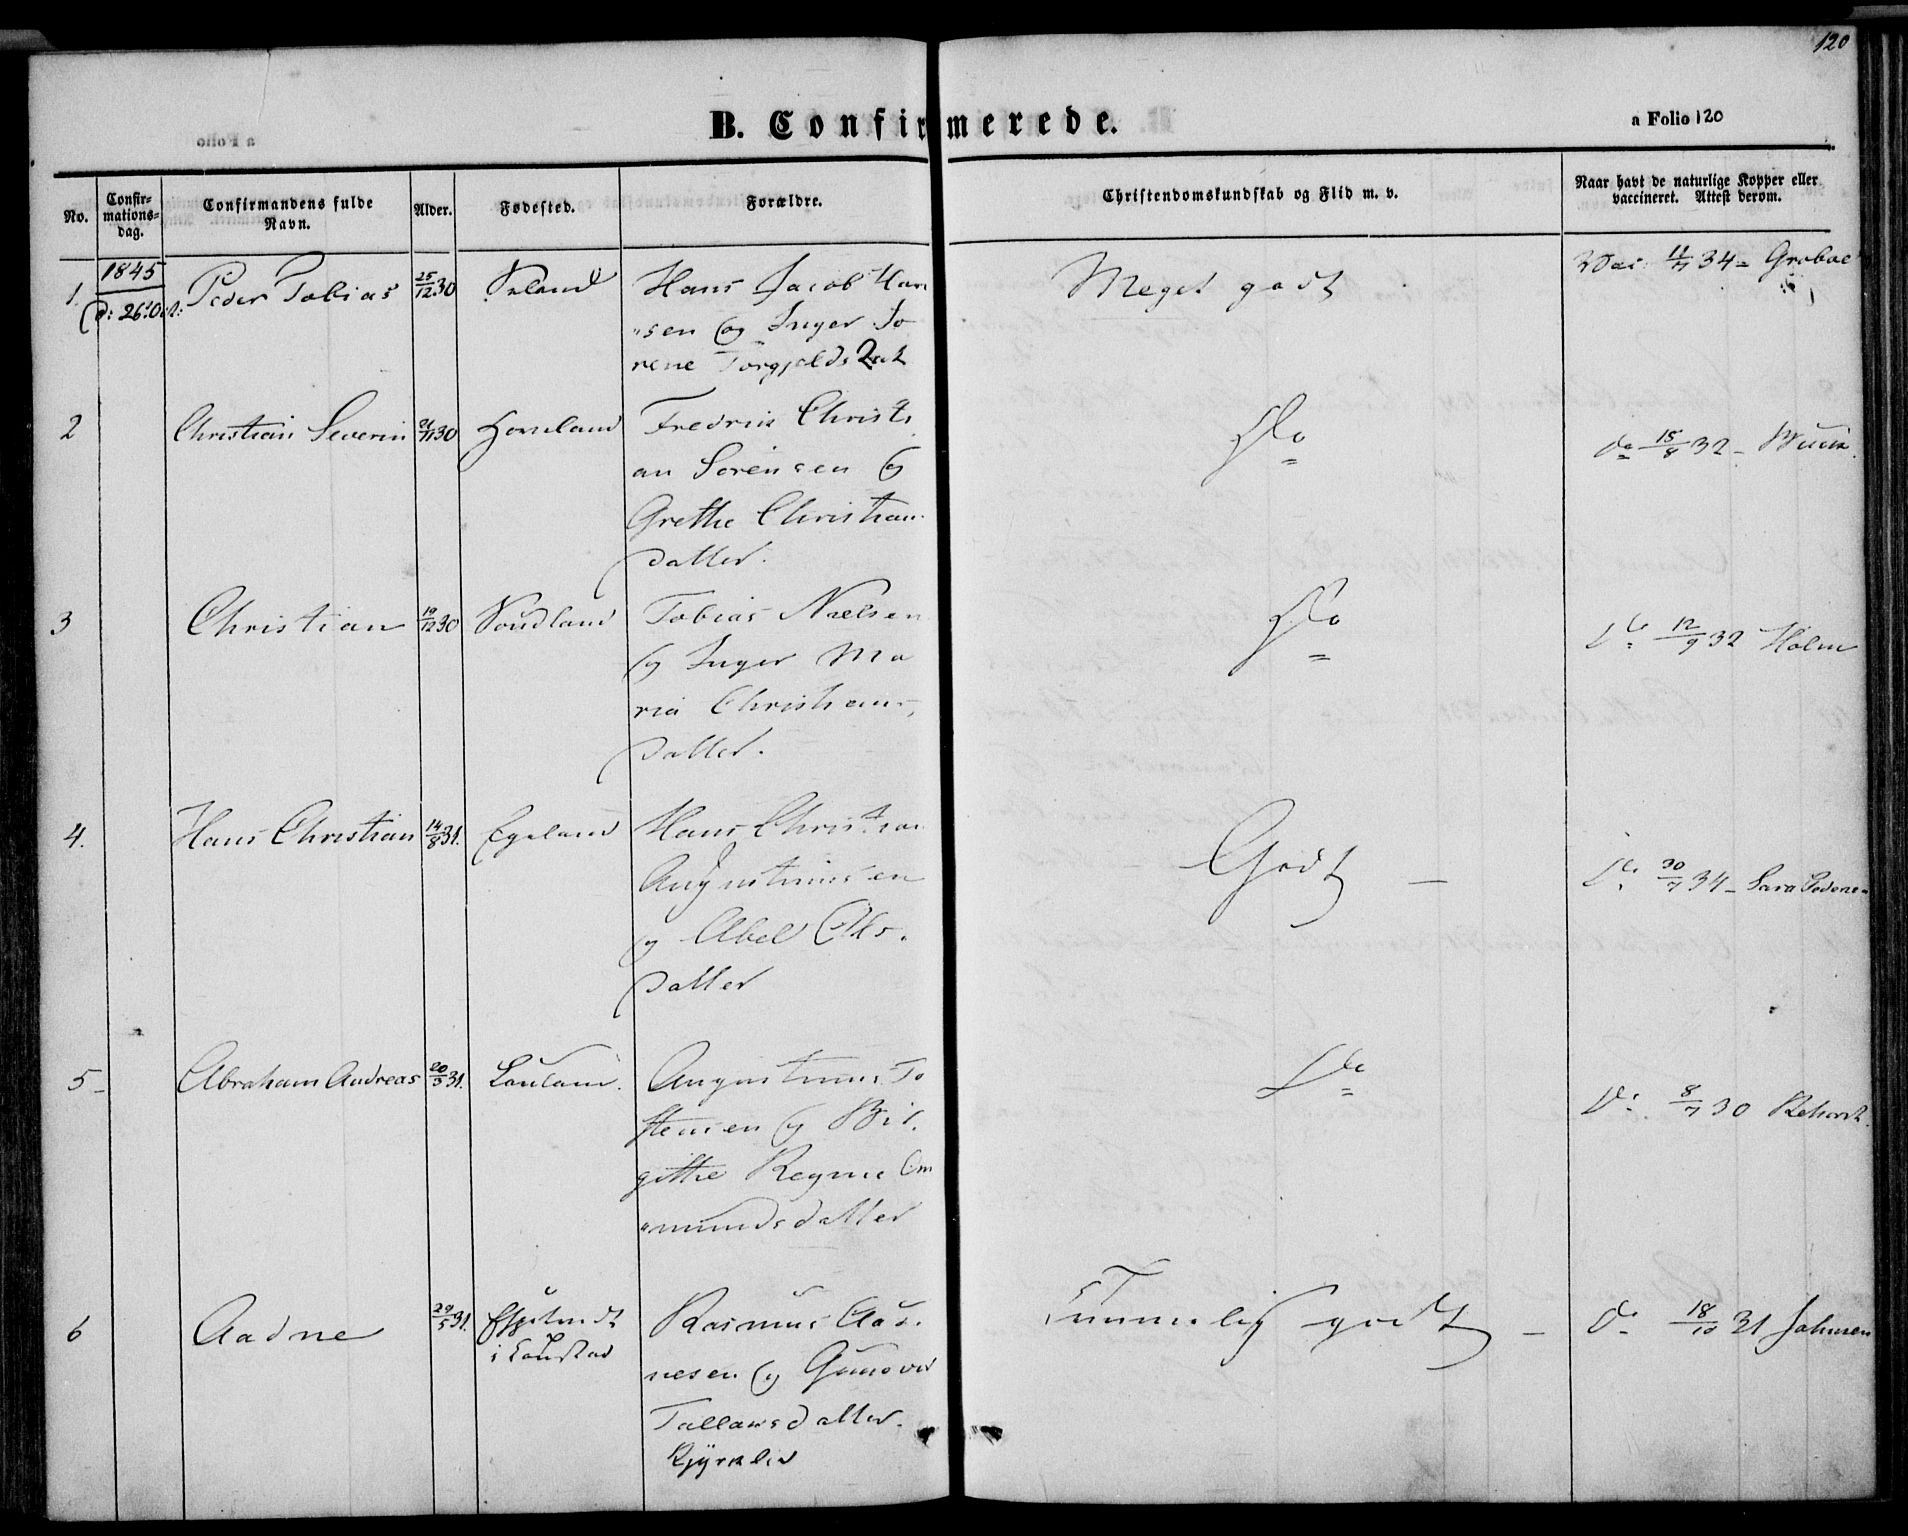 120
B. Confirmerede.
a Folio 120
No.
Confir-
mations-
dag.
Confirmandens fulde
Navn.
Alder.
Fødested.
Forældre.
Christendomskundskab og Flid m. v.
Naar havt de naturlige Kopper eller
vaccineret. Attest derom.
1845
1.
d: 26 Oct:
Peder Tobias
25/12 30
Hans Jacob Han
"sen og Inger To
rene Torgjelds Dat
Meget godt
Vac: 11/7 34 -
2
Christian Severin
21/11 30
Horneland
Fredrik Christi
an Sørensen og
Grethe Christians
datter.
Do
do 15/8 32 -
3
Christian
19/12 30
Tobias Nielsen
og Inger Ma
ria Christians-
datter.
Do
Do 12/9 32 Holm
4.
Hans Christian
14/8 31.
Egeland
Hans Christian
Augustinusen
og Abel Ols.
datter
Godt -
Do 30/7 34 - Sara
5 -
Abraham Andreas
20/5 31.
Augustinus To
stensen og Bir.
gitthe Regine Om
"mundsdatter
Do
Do 8/7 30
6
Aadne
29/5 31.
Rasmus Aad.
nesen og Gunover
Tallaksdatter.
Temmelig godt -
Do 18/10 31 Johnsen